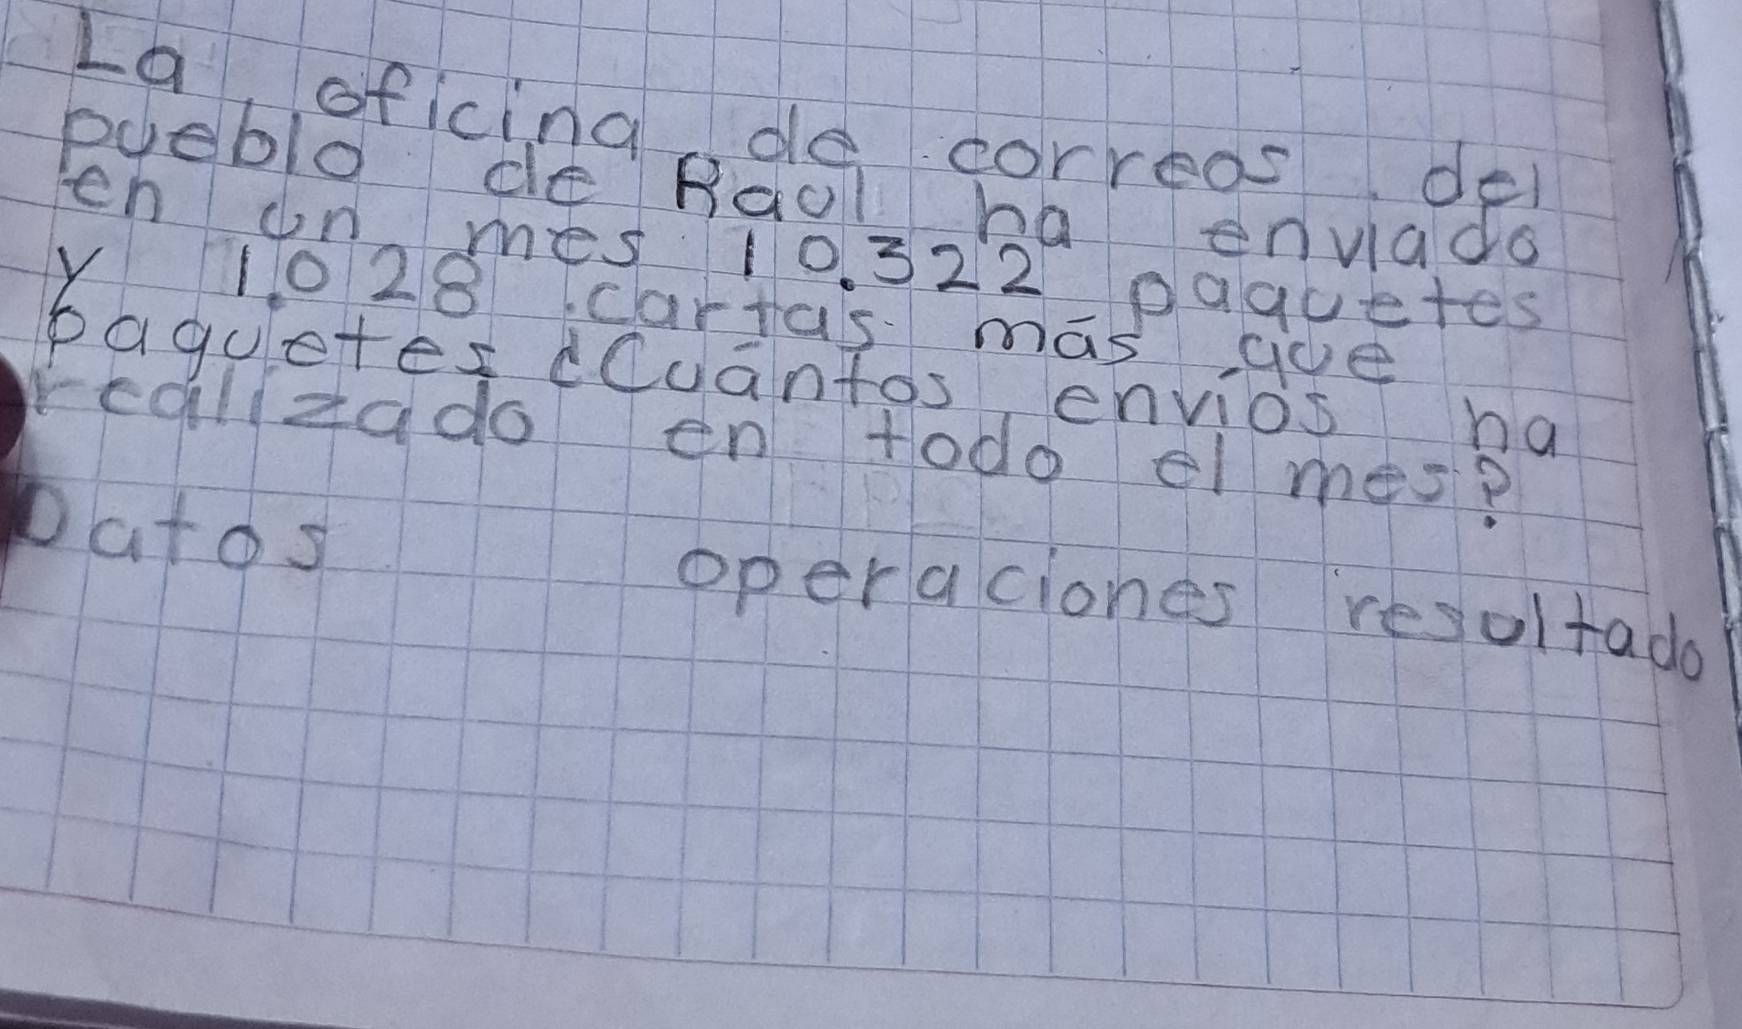 La oficina de correos del
pueblo de Raul ha enviado
en un mes 10.322 paquetes
y 1.028 cartas más que
paquetes ¿Cuántos envíos ha
realizado en todo el mes?
Datos operaciones resultado